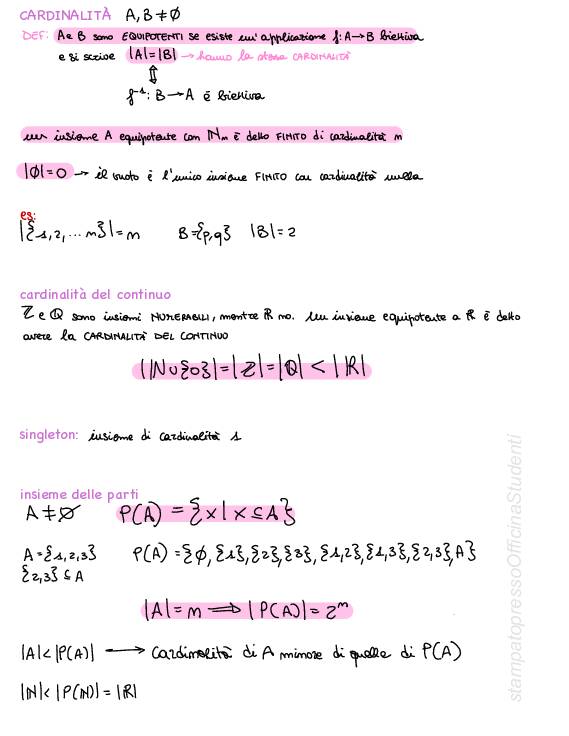 CARDINALITÀ A, B ≠ ∅
DEF: A e B sono EQUIPOTENTI se esiste un'applicazione f: A → B biettiva
e si scrive |A|=|B| → hanno la stessa CARDINALITÀ
⇕
f⁻¹: B → A è biettiva
un insieme A equipotente con ℕₙ è detto FINITO di cardinalità n
|∅|=0 → il vuoto è l'unico insieme FINITO con cardinalità nulla
es:
|{1,2,...n}|=n B={p,q} |B|=2
cardinalità del continuo
ℤ e ℚ sono insiemi NUMERABILI, mentre ℝ no. Un insieme equipotente a ℝ è detto
avere la CARDINALITÀ DEL CONTINUO
|ℕ∪{0}|=|ℤ|=|ℚ|<|ℝ|
singleton: insieme di cardinalità 1
insieme delle parti
A ≠ ∅ P(A) = {x | x ⊆ A}
A={1,2,3} P(A)={∅,{1},{2},{3},{1,2},{1,3},{2,3},A}
{2,3} ⊆ A
|A|=n ⟹ |P(A)|=2ⁿ
|A|<|P(A)| → cardinalità di A minore di quella di P(A)
|ℕ|<|P(ℕ)|=|ℝ|
stampatopressoOfficinaStudenti